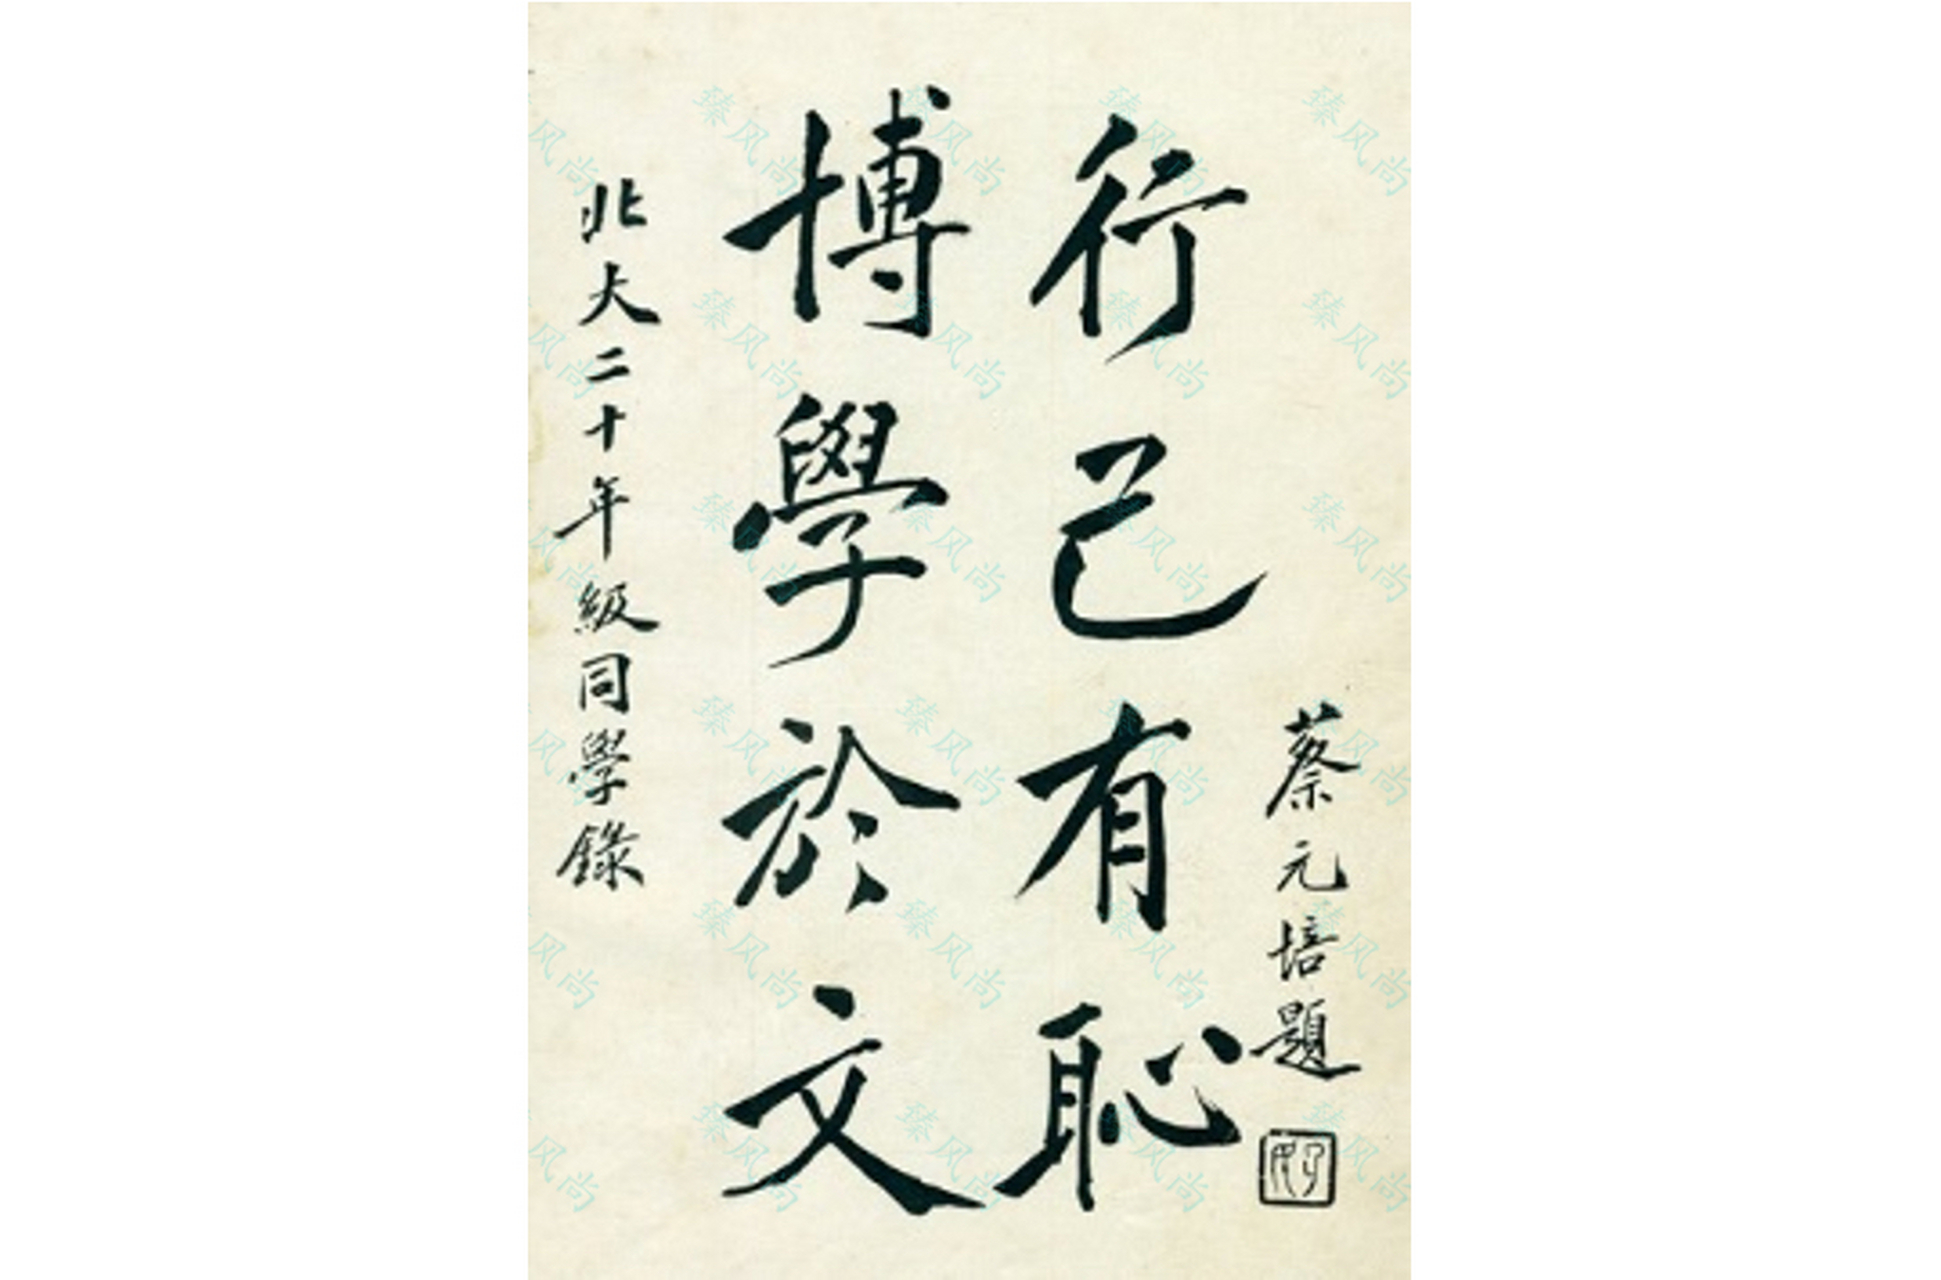 北大二十年級同學錄
博學於文
行己有恥
蔡元培題
孑民
臻风尚